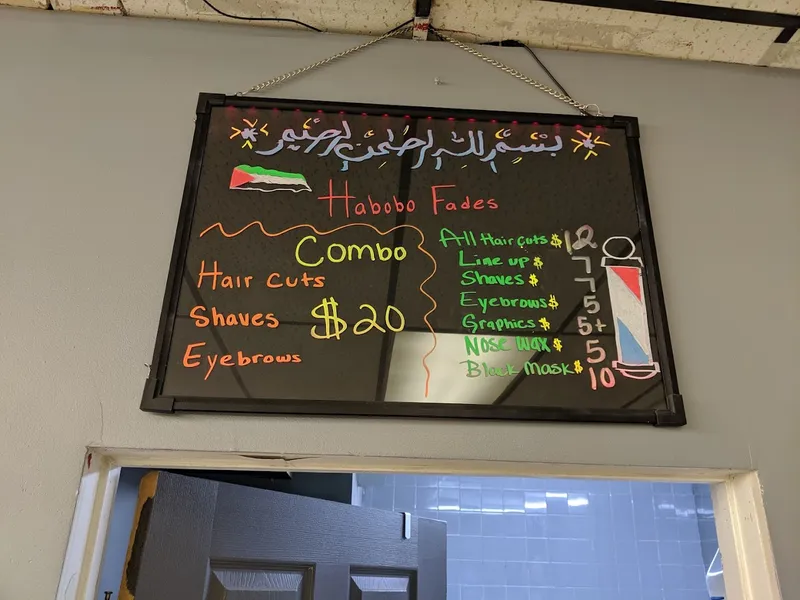 بِسْمِ اللهِ الرَّحْمٰنِ الرَّحِيْمِ
Habobo Fades
Combo
Hair cuts
Shaves $20
Eyebrows
All Hair cuts $ 12
Line up $ 7
Shaves $ 7
Eyebrows $ 5
Graphics $ 5+
Nose wax $ 5
Black mask $ 10